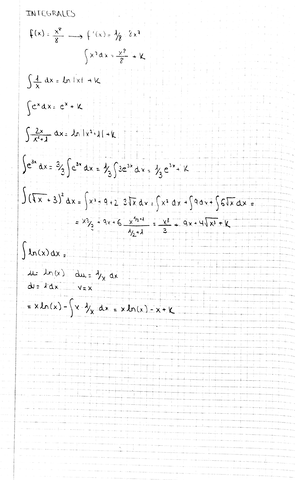 INTEGRALES
f(x) = x⁸/8 → f'(x) = 1/8 · 8x⁷
∫x⁷dx = x⁸/8 + K
∫1/x dx = ln|x| + K
∫eˣdx = eˣ + K
∫2x/(x²+1) dx = ln|x²+1| + K
∫e³ˣdx = 3/3 ∫e³ˣdx = 1/3 ∫3e³ˣdx = 1/3 e³ˣ + K
∫(√x + 3)² dx = ∫x² + 9 + 2 · 3√x dx = ∫x² dx + ∫9dx + ∫6√x dx =
= x³/3 + 9x + 6 = x³/3 + 9x + 4√x³ + K
∫ln(x)dx =
u = ln(x) du = 1/x dx
dv = 1 dx v = x
= x ln(x) − ∫x · 1/x dx = x ln(x) − x + K